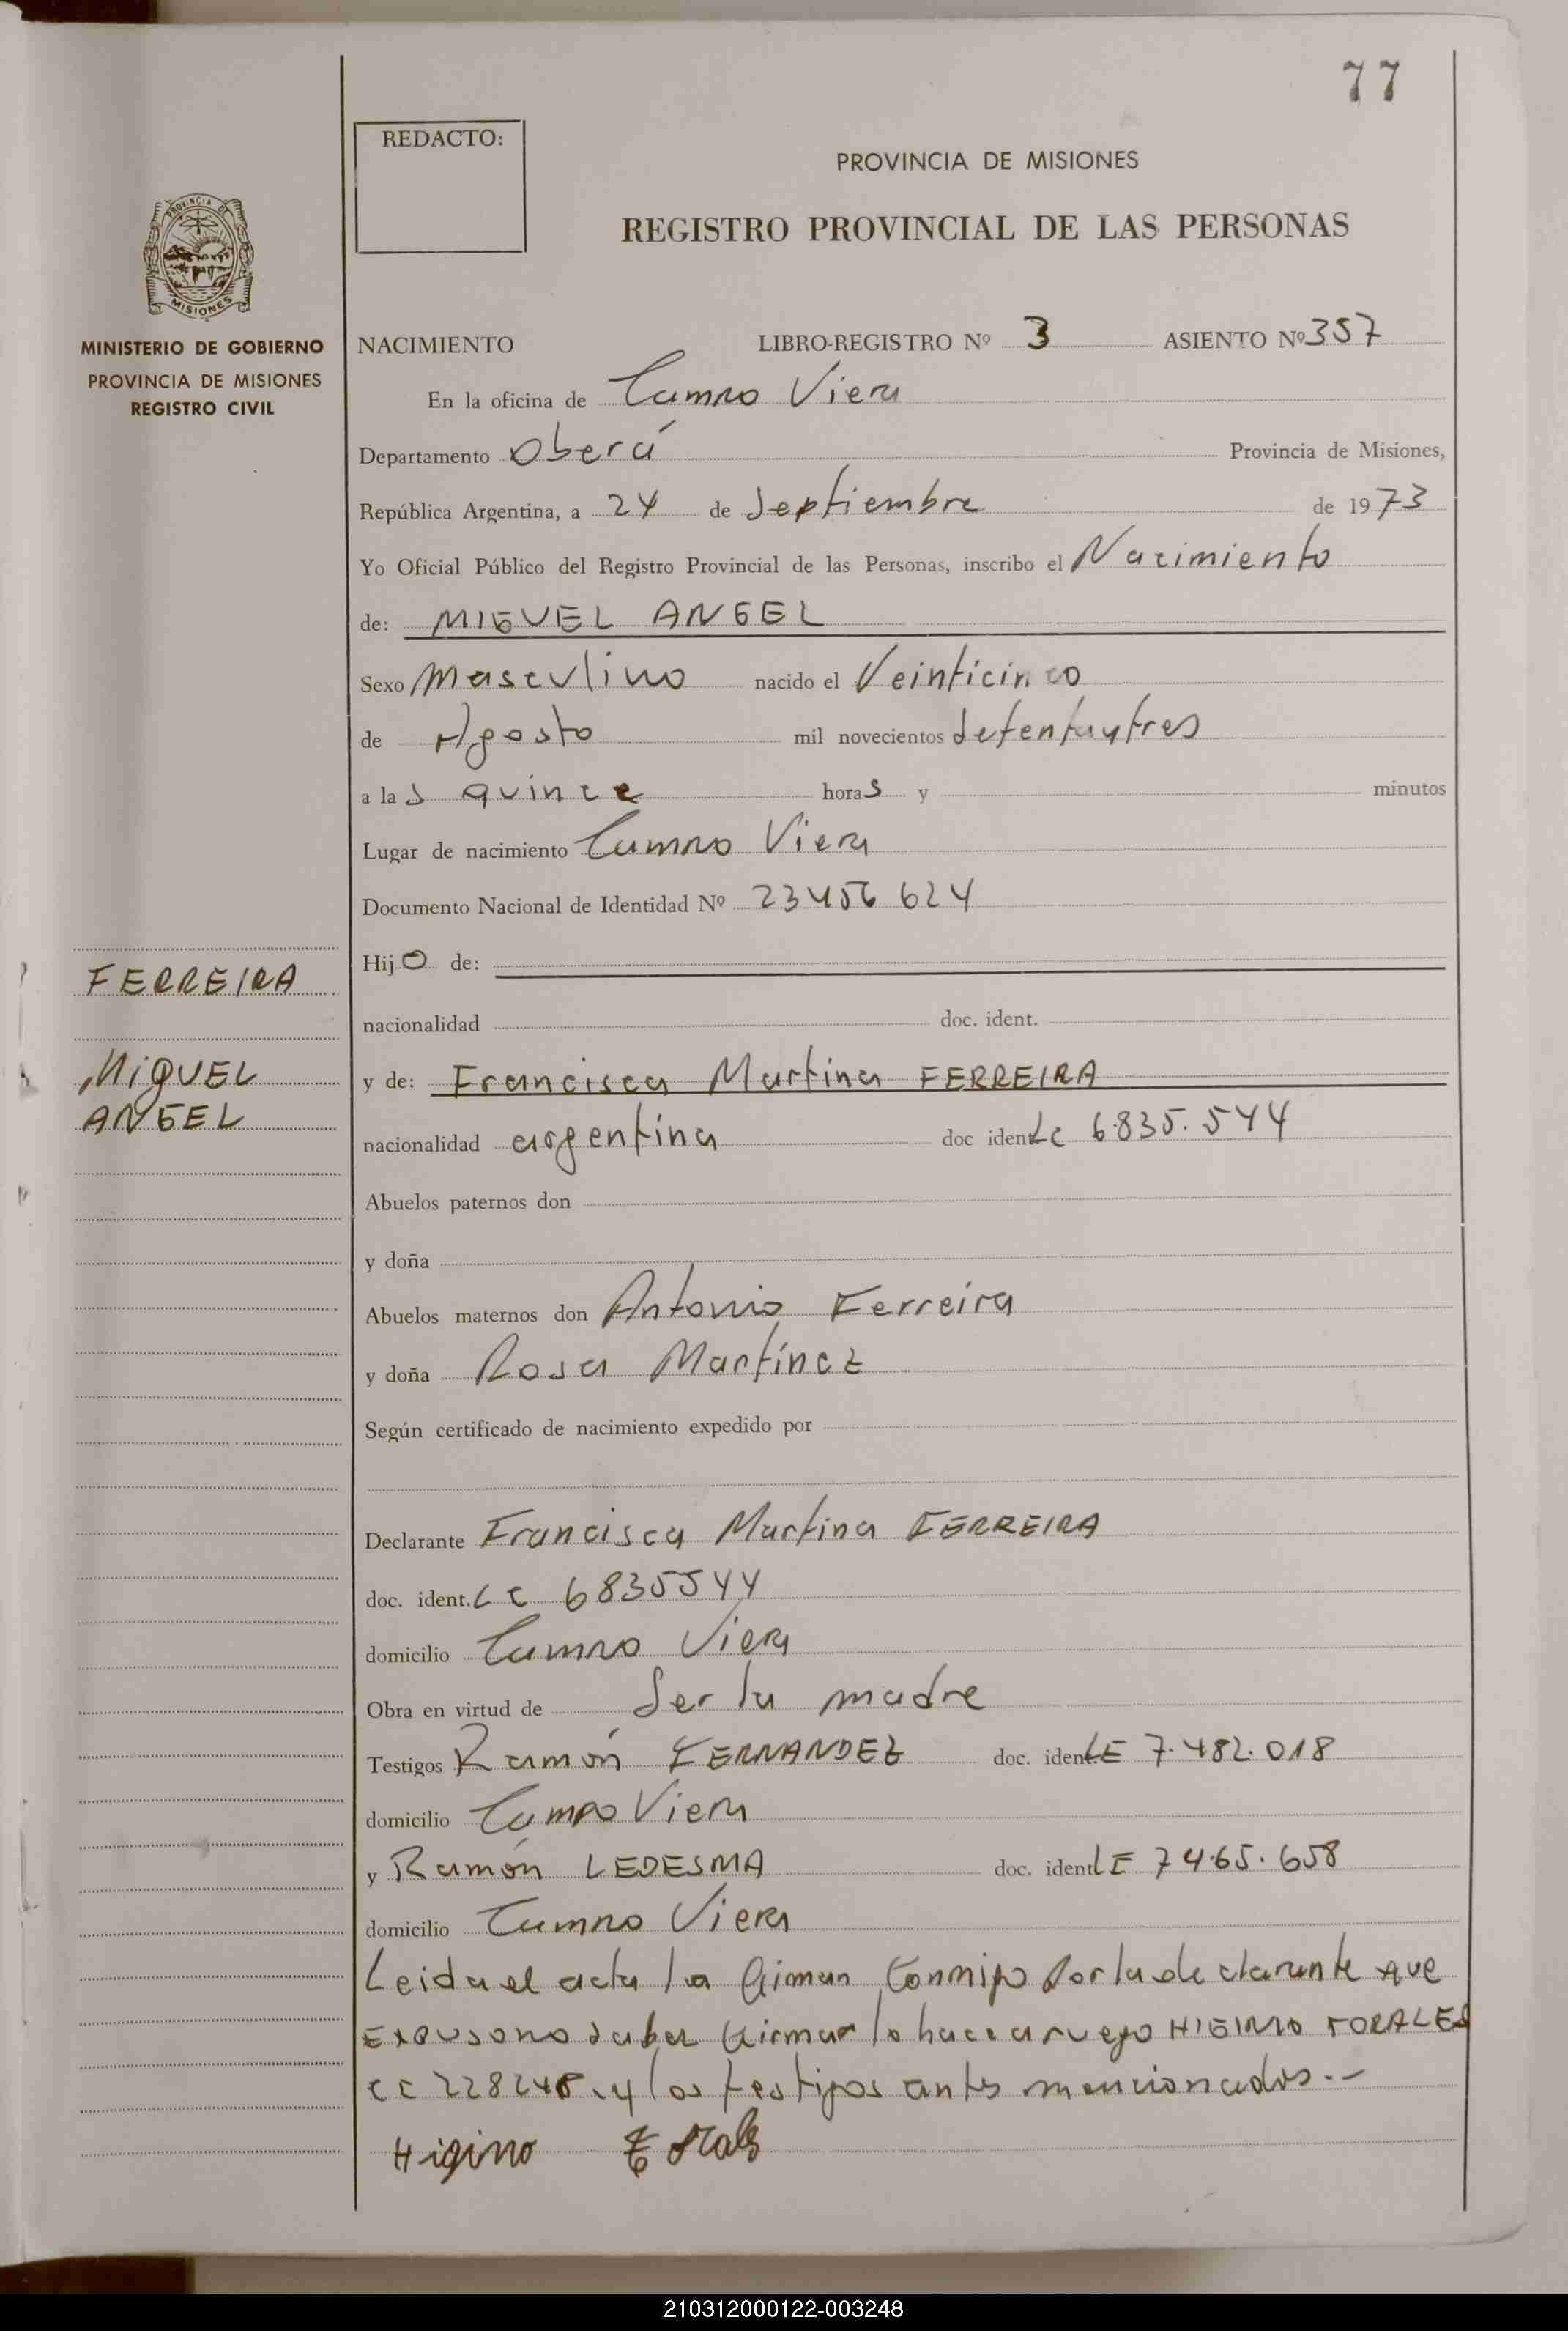 77
REDACTO:
PROVINCIA DE MISIONES
REGISTRO PROVINCIAL DE LAS PERSONAS
PROVINCIA DE
MISIONES
MINISTERIO DE GOBIERNO
PROVINCIA DE MISIONES
REGISTRO CIVIL
NACIMIENTO LIBRO-REGISTRO Nº 3 ASIENTO Nº 357
En la oficina de Campo Viera
Departamento Oberá Provincia de Misiones,
República Argentina, a 24 de Septiembre de 1973
Yo Oficial Público del Registro Provincial de las Personas, inscribo el Nacimiento
de: MIGUEL ANGEL
Sexo Masculino nacido el Veinticinco
de Agosto mil novecientos setentaytres
a las quince horas y minutos
Lugar de nacimiento Campo Viera
Documento Nacional de Identidad Nº 23456624
Hijo de:
FERREIRA
nacionalidad doc. ident.
MIGUEL
y de: Francisca Martina FERREIRA
ANGEL
nacionalidad argentina doc ident Lc 6.835.544
Abuelos paternos don
y doña
Abuelos maternos don Antonio Ferreira
y doña Rosa Martínez
Según certificado de nacimiento expedido por
Declarante Francisca Martina FERREIRA
doc. ident. LC 6835544
domicilio Campo Viera
Obra en virtud de Ser la madre
Testigos Ramón FERNANDEZ doc. ident LE 7.482.018
domicilio Campo Viera
y Ramón LEDESMA doc. ident LE 7465.658
domicilio Campo Viera
Leida el acta la firman conmigo por la declarante que
expuso no saber firmar lo hace a ruego HIGINIO TORALES
y los testigos antes mencionados.-
Higino Torales
210312000122-003248